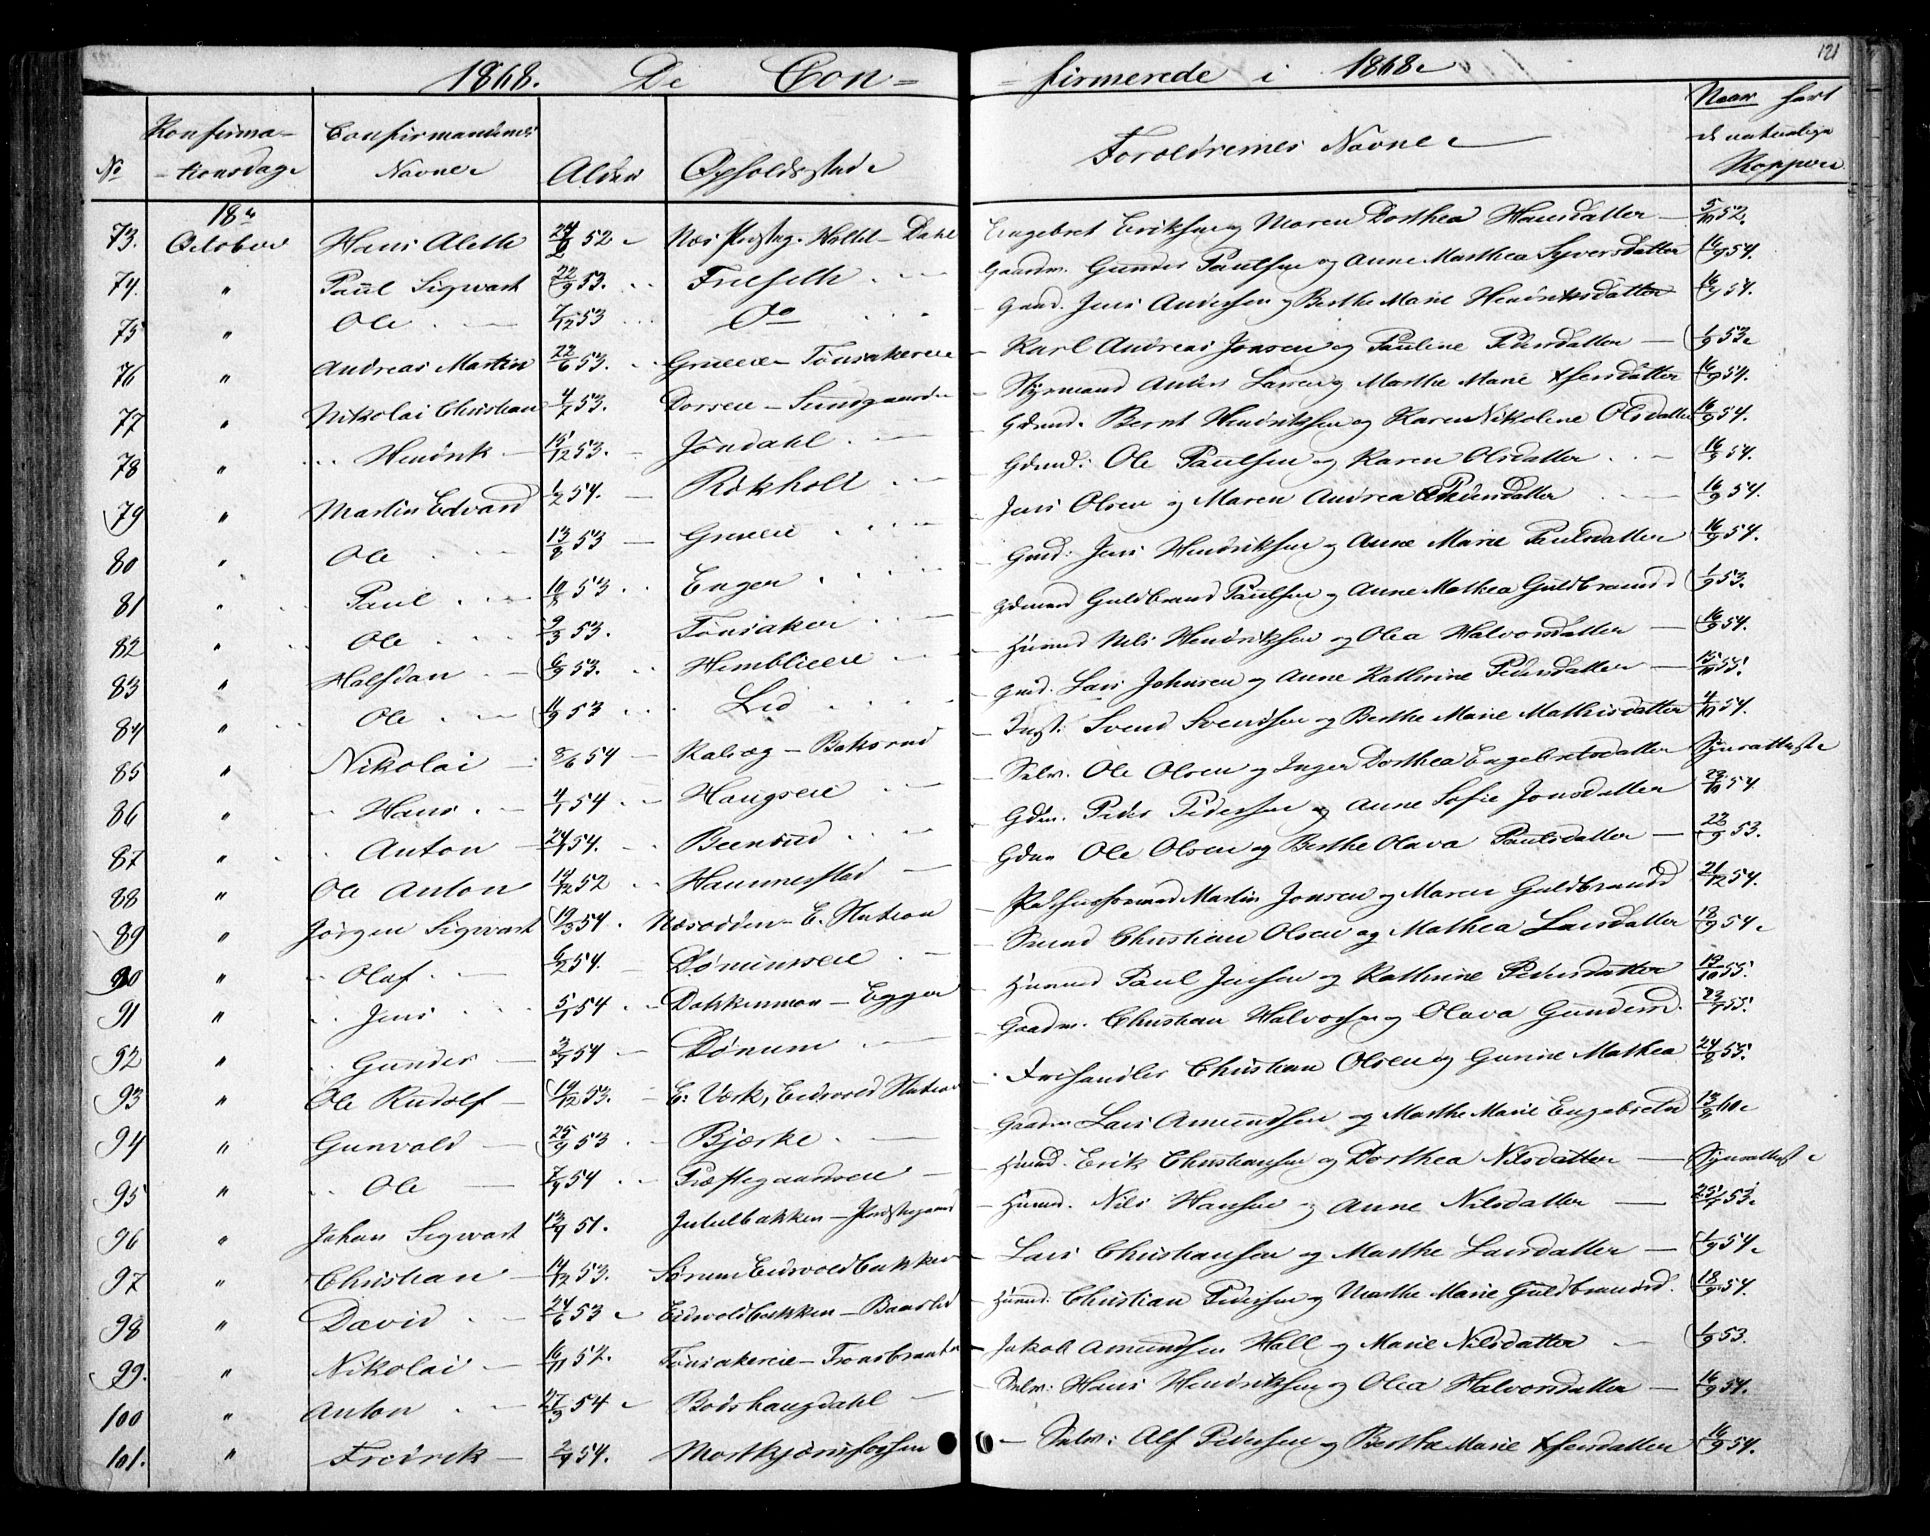 121
1868. De Con- -firmerede i 1868
No Konfirma- -tionsdag Confirmandernes Navne Alder Opholdsstad Forældrenes Navne Naar havt de naturlige Kopper
73. 18 October Hans Aleth 52 Næs Dahl Engebret Eriksen og Maren Dorthea Hansdatter 52.
74. " Paul Sigwart 22/9 53. Frilseth Gaardm. Gunder Paulsen og Anne Marthea Syversdatter 16/9 54.
75 " Ole 7/12 53 Do Gaard. Jens Andersen og Berthe Marie Hendriksdatter 16/9 54.
76 " Andreas Martin 22/6 53. Tønsakereie Karl Andreas Jensen og Pauline Pedersdatter 1/9 53
77 " Nikolai Christian 4/7 53. Styrmand Anders Larsen og Marthe Marie 16/9 54.
78 " Hendrik 15/12 53. Jøndahl Gdmd. Bernt Hendriksen og Karen Nikoline Olsdatter 16/9 54.
79 " Martin Edvard 1/2 54. Rokholt Gdmd: Ole Paulsen og Karen Olsdatter 16/9 54.
80 " Ole 13/8 53 Jens Olsen og Maren Andrea 16/9 54.
81 " Paul 10/8 53 Enger Gmd: Jens Hendriksen og Anne Marie Paulsdatter 16/9 54.
82 " Ole 9/3 53. Tønsaker Gdmand Guldbrand Paulsen og Anne Mathea Guldbrandsd 1/9 53.
83 " Halfdan 6/9 53. Hemblieie Huusmd Nils Hendriksen og Olea Halvorsdatter 16/9 54.
84 " Ole 11/9 53 Lid Gmd. Lars Johnsen og Anne Kathrine Pedersdatter 15/10 55.
85 " Nikolai 8/6 54 Inst: Svend Svendsen og Berthe Marie Mathisdatter 4/10 54.
86 " Hans 4/1 54 Haugseie Selv. Ole Olsen og Inger Dorthea Engebretsdatter Synsattest
87 " Anton 24/1 54. Beensud Gdm. Peder Pedersen og Anne Sofie Jonsdatter 23/10 54
88 " Ole Anton 14/12 52 Hammerstad Gdm Ole Olsen og Berthe Olava Paulsdatter 22/9 53.
89 " Jørgen Sigwart 13/3 54. Næsodden E. Station Martin Jonsen og Maren Guldbrandsd 21/12 54.
90 " Olaf 6/2 54. Christian Olsen og Mathea Larsdatter 18/9 54
91 " Jens 5/1 54 Dokkenmoen – Egger Huusmd Paul Jensen og Kathrine Pedersdatter 55.
92 " Gunder 3/7 54 Dønum Gaardm. Christian Halvorsen og Olava Gundersd. 23/9 55.
93 " Ole Rudolf 53. E: Værk, Eidsvold Station Frihandler Christian Olsen og Gunine Mathea 24/9 55.
94 " Gunvald 25/9 53 Bjørke Gaardm Lars Amundsen og Marthe Marie Engebretsd 13/9 60
95 " Ole 7/4 54 Præstegaardseie Huusmd. Erik Christiansen og Dorthea Nilsdatter Synsattest
96 " Johan Sigwart 13/9 51. Jululbakken – Huusmd. Nils Hansen og Anne Nilsdatter 53.
97 " Christian 14/12 53. Eidsvoldbakken Lars Christiansen og Marthe Larsdatter 1/9 54
98 " David 24/6 53 Eidsvoldbakken Huusmd: Christian Pedersen og Marthe Marie Guldbrandsd. 18/9 54.
99. " Nikolai 16/11 52. Tønsakereie Jakob Amundsen Hall og Marie Nilsdatter 1/9 53.
100 " Anton 27/3 54 Bødshaugdahl Selv: Hans Hendriksen og Olea Halvorsdatter 16/9 54.
101. " Fredrik 2/4 54. Selv: Alf Pedersen og Berthe Marie 16/9 54.